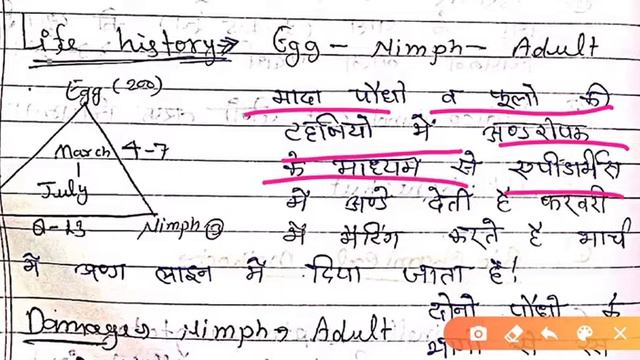 Life history⇒ Egg – Nimph – Adult
Egg (200)
March 4-7
July
Nimph
मादा पौधो व फूलो की
टहनियो में अण्डरोपक
के माध्यम से एपीडार्मिस
में अण्डे देती है फरवरी
में मैटिंग करते है मार्च
में अण्डा लाइन में दिया जाता है!
Damage → Nimph → Adult
दोनो पौधो के